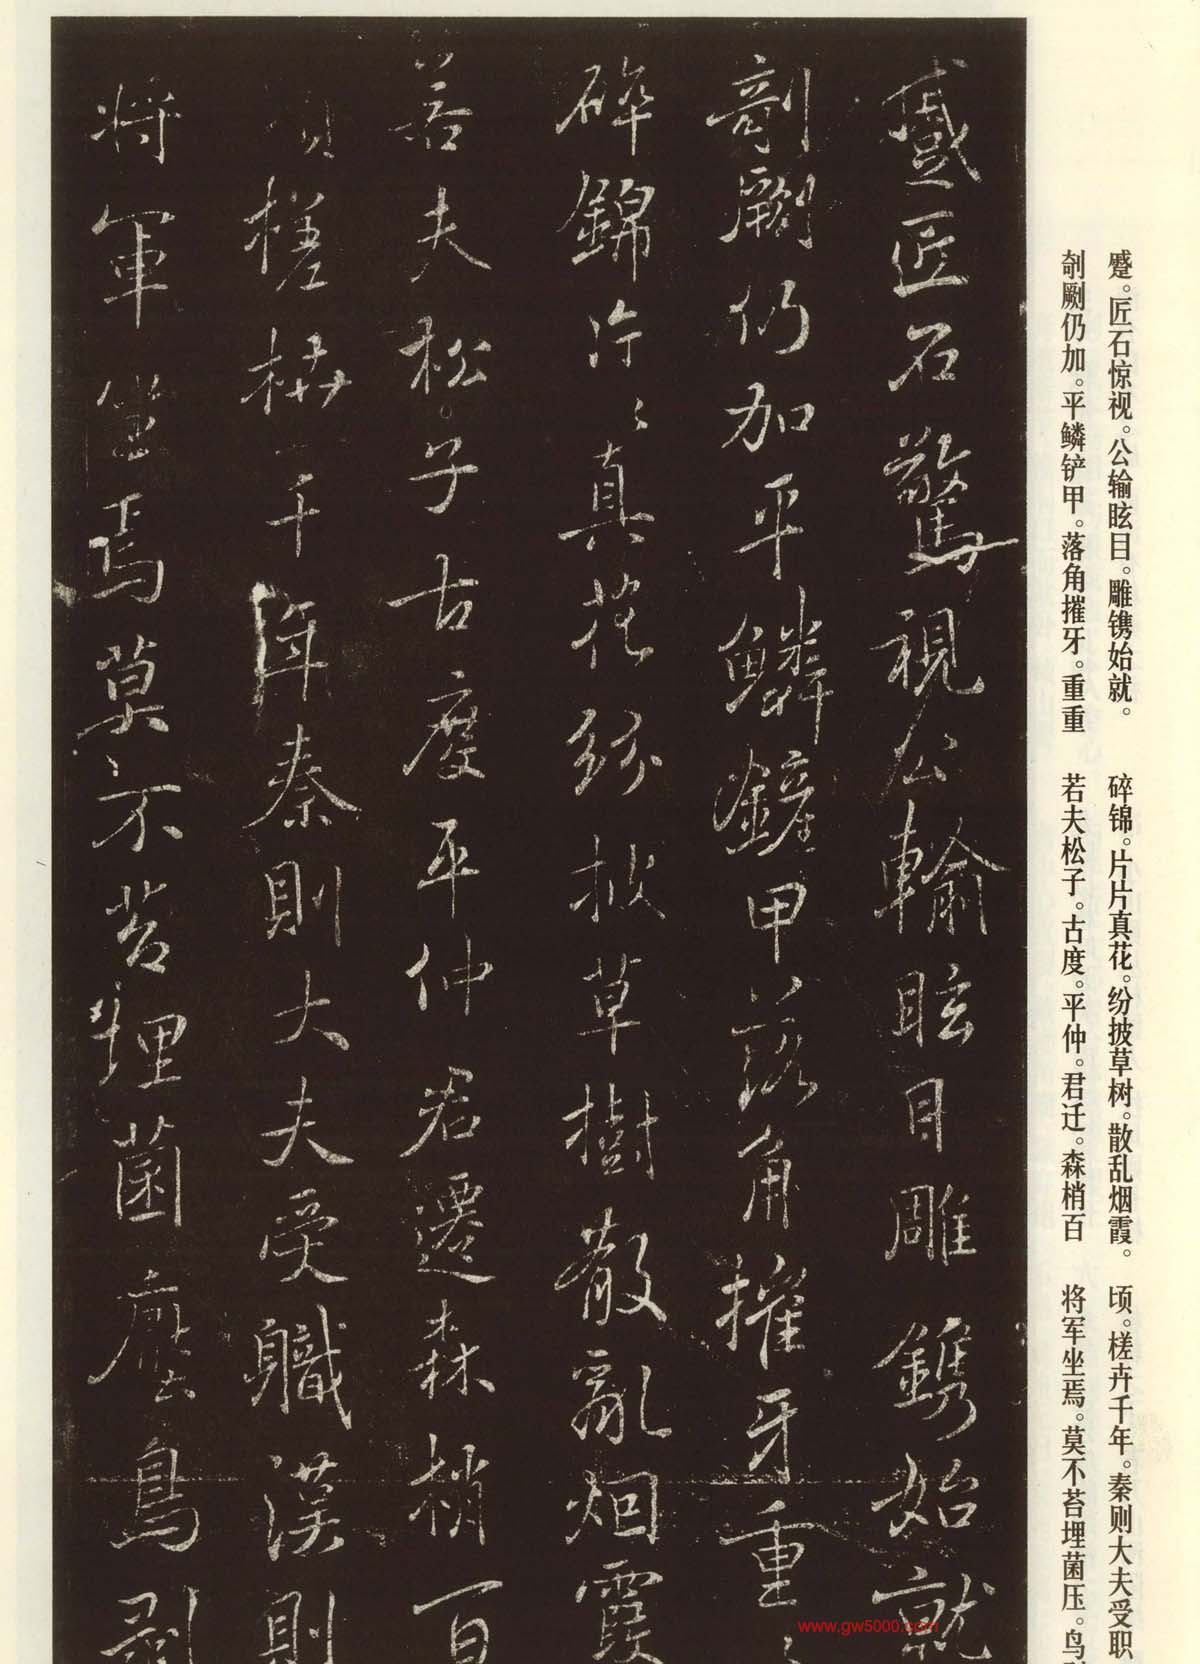 蹙。匠石惊视。公输眩目。雕镌始就。
剞劂仍加。平鳞铲甲。落角摧牙。重重
碎锦。片片真花。纷披草树。散乱烟霞。
若夫松子。古度。平仲。君迁。森梢百
顷。槎卉千年。秦则大夫受职
将军坐焉。莫不苔埋菌压。鸟
蹙匠石驚視公輸眩目雕鐫始就
剞劂仍加平鱗鏟甲落角摧牙重〻
碎錦片〻真花紛披草樹散亂烟霞
若夫松子古度平仲君遷森梢百
頃槎枿千年秦則大夫受職漢則
將軍坐焉莫不苔埋菌壓鳥剥
www.gw5000.com